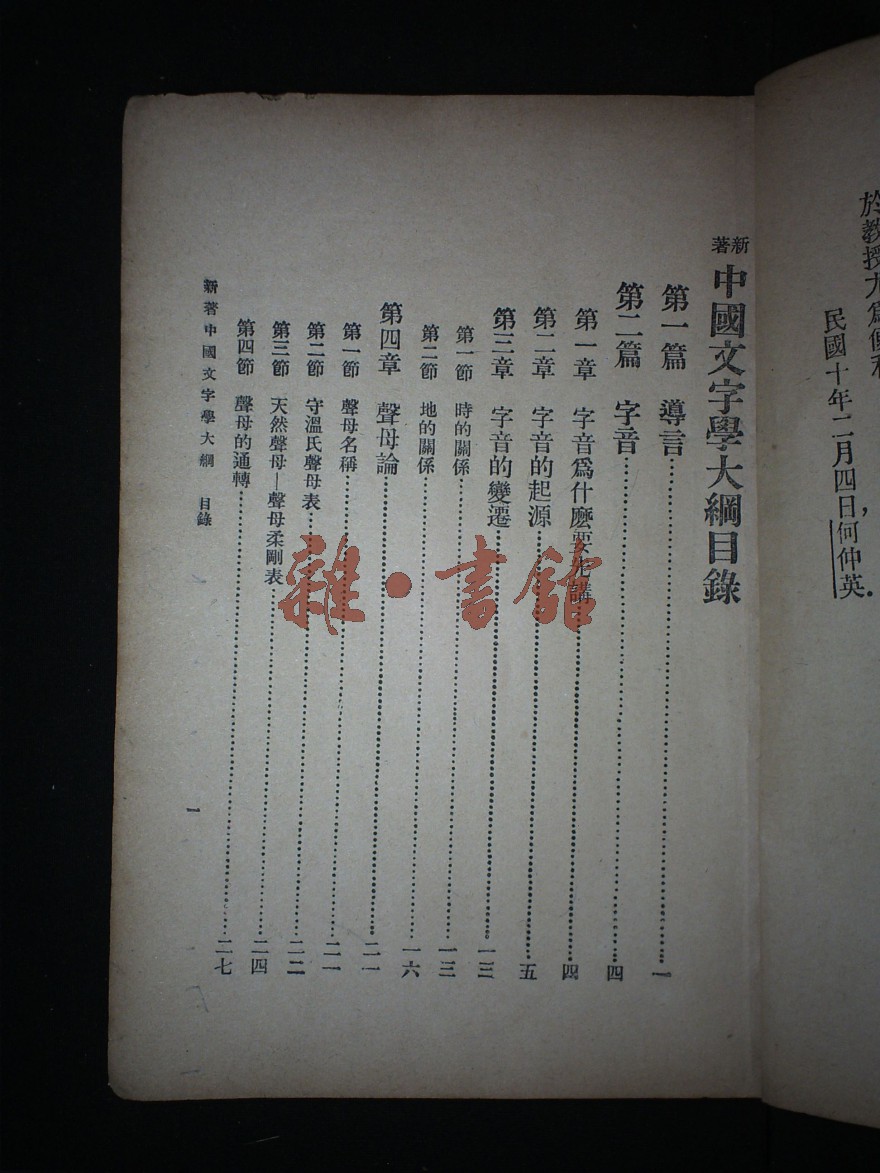 於教授尤爲便利
民國十年二月四日，何仲英．
新著 中國文字學大綱目錄
第一篇 導言……一
第二篇 字音……四
第一章 字音爲什麼要先講……四
第二章 字音的起源……五
第三章 字音的變遷……一三
第一節 時的關係……一三
第二節 地的關係……一六
第四章 聲母論……二一
第一節 聲母名稱……二一
第二節 守溫氏聲母表……二二
第三節 天然聲母—聲母柔剛表……二四
第四節 聲母的通轉……二七
新著中國文字學大綱 目錄
一
雜·書館